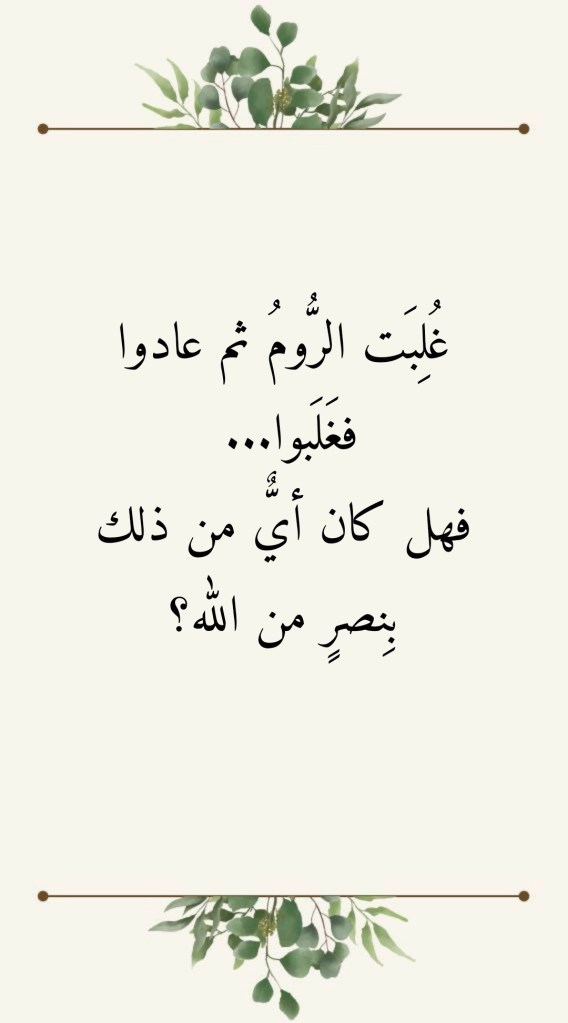 غُلِبَت الرُّومُ ثم عادوا
فغَلَبوا...
فهل كان أيٌّ من ذلك
بِنصرٍ من الله؟